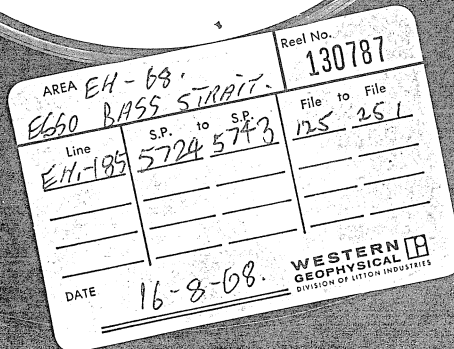 AREA EH-68.
ESSO BASS STRAIT.
Reel No.
130787
Line S.P. to S.P. File to File
EH-185 5724 5743 125 251
DATE 16-8-68.
WESTERN
GEOPHYSICAL
DIVISION OF LITTON INDUSTRIES